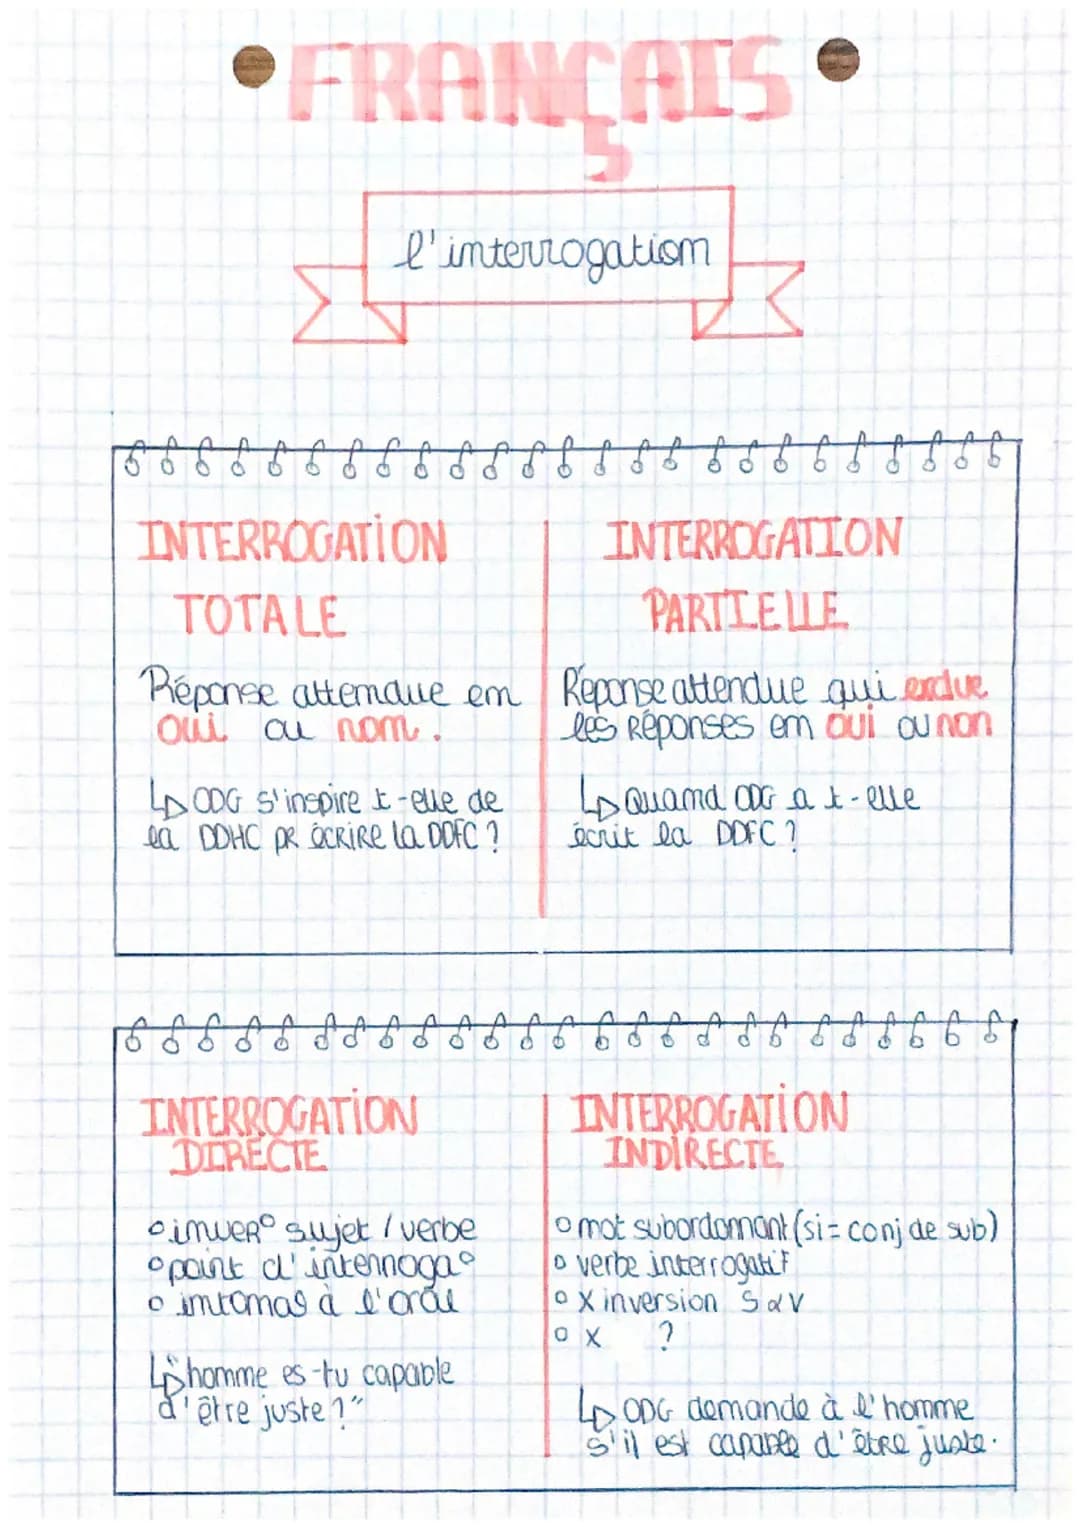 FRANÇAIS
l'interrogation
INTERROGATION
TOTALE
Réponse attendue en
oui ou non.
↳ ODG s'inspire t-elle de
la DDHC pr écrire la DDFC ?
INTERROGATION
PARTIELLE
Réponse attendue qui exclue
les réponses en oui ou non
↳ Quand ODG a t-elle
écrit la DDFC ?
INTERROGATION
DIRECTE
o inver° sujet / verbe
o point d'interroga°
o intonas à l'oral
↳ "homme es-tu capable
d'être juste ?"
INTERROGATION
INDIRECTE
o mot subordonnant (si = conj de sub)
o verbe interrogatif
o X inversion S & V
o X ?
↳ ODG demande à l'homme
s'il est capable d'être juste.